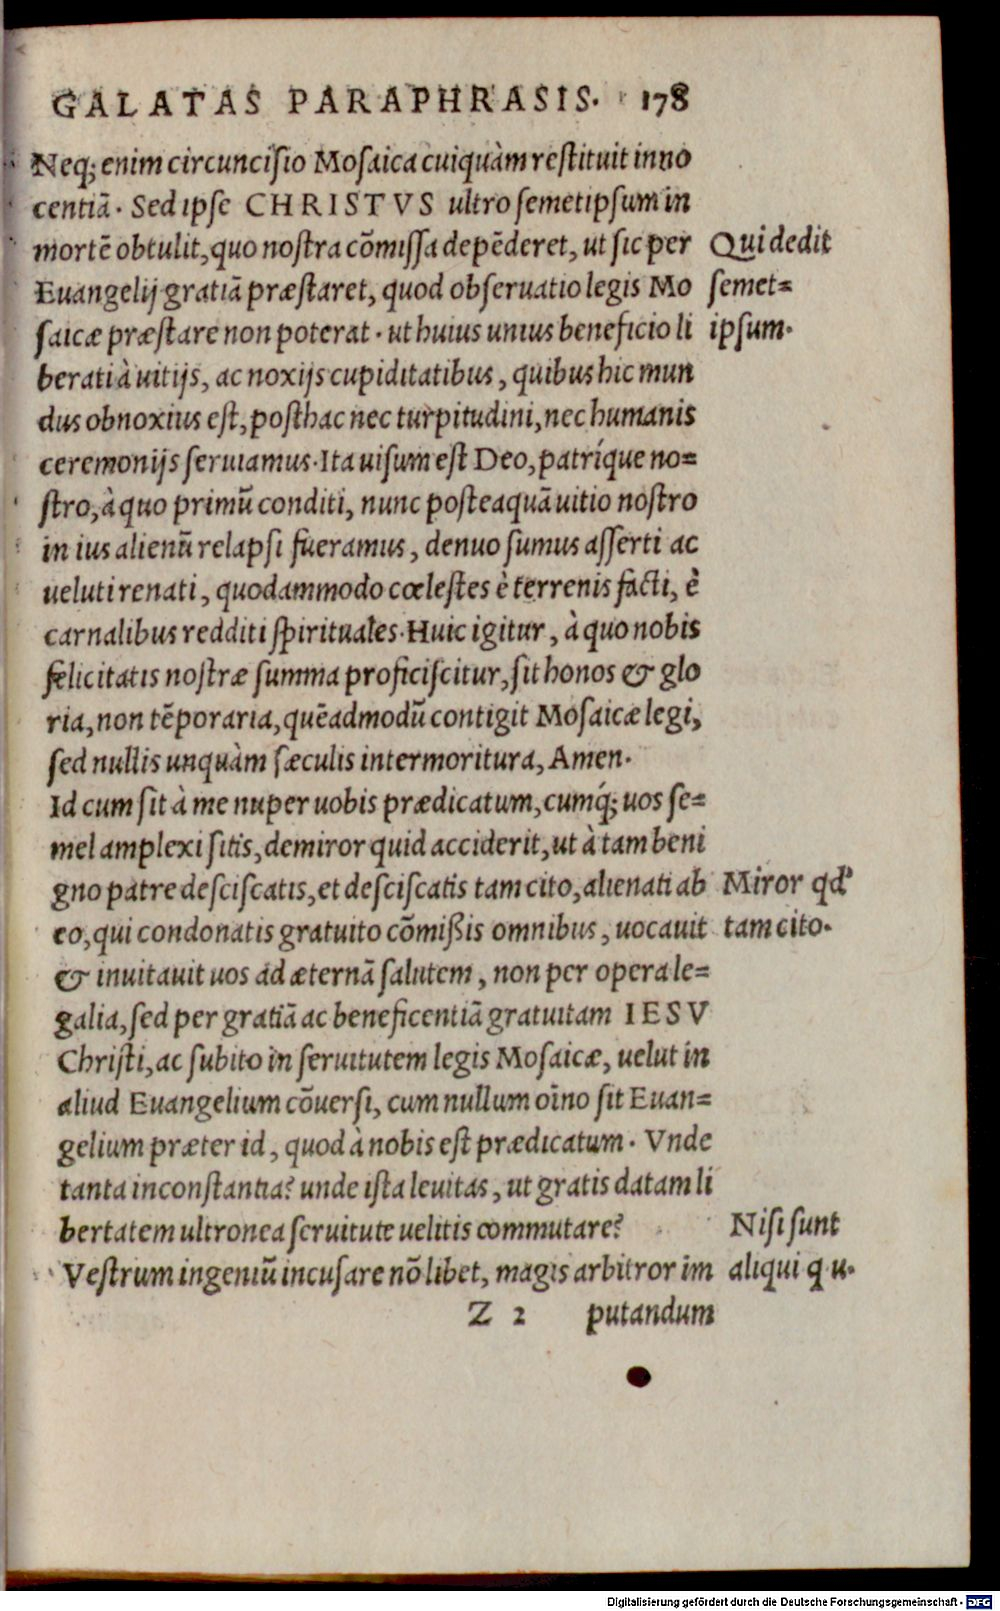 GALATAS PARAPHRASIS. 178
Neq; enim circuncisio Mosaica cuiquàm restituit inno
centiā. Sed ipse CHRISTVS ultro semetipsum in
mortē obtulit, quo nostra cōmissa depēderet, ut sic per
Euangelij gratiā præstaret, quod obseruatio legis Mo
saicæ præstare non poterat. ut huius unius beneficio li
berati à uitijs, ac noxijs cupiditatibus, quibus hic mun
dus obnoxius est, posthac nec turpitudini, nec humanis
ceremonijs seruiamus. Ita uisum est Deo, patríque no=
stro, à quo primū conditi, nunc posteaquā uitio nostro
in ius alienū relapsi fueramus, denuo sumus asserti ac
ueluti renati, quodammodo cœlestes è terrenis facti, è
carnalibus redditi spirituales. Huic igitur, à quo nobis
felicitatis nostræ summa proficiscitur, sit honos & glo
ria, non tēporaria, quēadmodū contigit Mosaicæ legi,
sed nullis unquàm sæculis intermoritura, Amen.
Id cum sit à me nuper uobis prædicatum, cumq́; uos se=
mel amplexi sitis, demiror quid acciderit, ut à tam beni
gno patre desciscatis, et desciscatis tam cito, alienati ab
eo, qui condonatis gratuito cōmißis omnibus, uocauit
& inuitauit uos ad æternā salutem, non per opera le=
galia, sed per gratiā ac beneficentiā gratuitam IESV
Christi, ac subito in seruitutem legis Mosaicæ, uelut in
aliud Euangelium cōuersi, cum nullum oīno sit Euan=
gelium præter id, quod à nobis est prædicatum. Vnde
tanta inconstantia? unde ista leuitas, ut gratis datam li
bertatem ultronea seruitute uelitis commutare?
Vestrum ingeniū incusare nō libet, magis arbitror im
Z 2 putandum
Qui dedit
semet=
ipsum.
Miror qd'
tam cito.
Nisi sunt
aliqui q u.
Digitalisierung gefördert durch die Deutsche Forschungsgemeinschaft - DFG